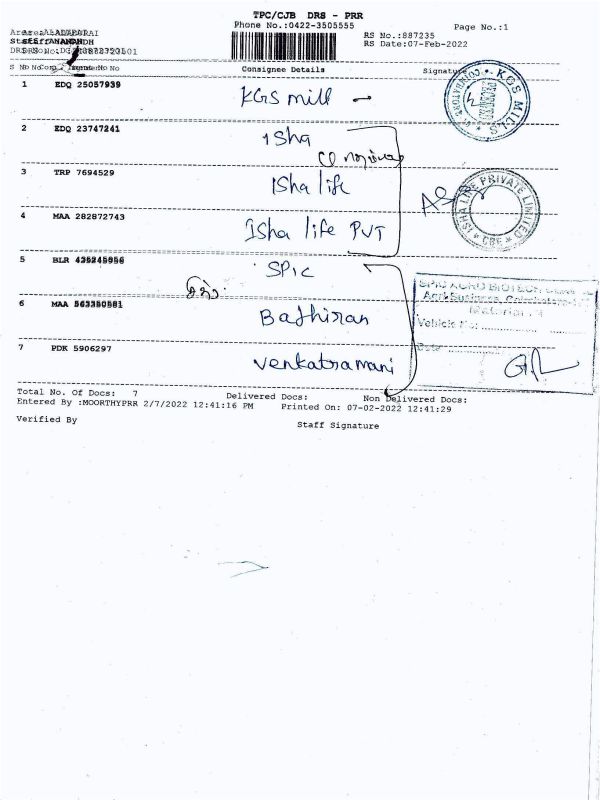 TPC/CJB DRS - PRR
Phone No.:0422-3505555
Page No.:1
RS No.:887235
RS Date:07-Feb-2022
S No
Consignee Details
Signature
1 EDQ 25057939 KGS mill
2 EDQ 23747241 Isha
3 TRP 7694529 Isha life
4 MAA 282872743 Isha life PVT
5 BLR SPIC
6 MAA Bathiran
7 PDK 5906297 Venkatramani
KGS MILLS
ISHA LIFE PRIVATE LIMITED
CBE
SPIC AGRO BIOTECH
Agri Business, Coimbatore
Vehicle No:
Date
Total No. Of Docs: 7 Delivered Docs: Non Delivered Docs:
Entered By :MOORTHYPRR 2/7/2022 12:41:16 PM Printed On: 07-02-2022 12:41:29
Verified By
Staff Signature